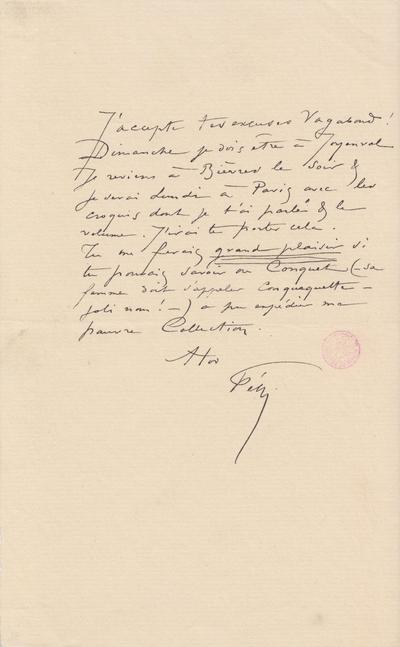 J'accepte tes excuses Vagabond!
Dimanche je dois être à Joyenval
Je reviens à Bièvres le soir &
je serai Lundi à Paris avec les
croquis dont je t'ai parlé & le
volume. J'irai te porter cela.
Tu me ferais grand plaisir si
tu pouvais savoir où Conquet (-sa
femme doit s'appeler Conquaquette-
Joli nom!-) a pu expédier ma
pauvre Collection.
A toi